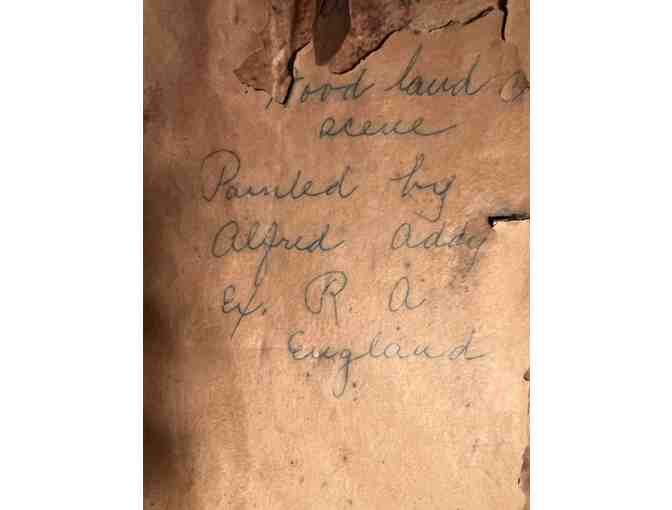 Wood land
scene
Painted by
Alfred Addy
Ex. R. A
England